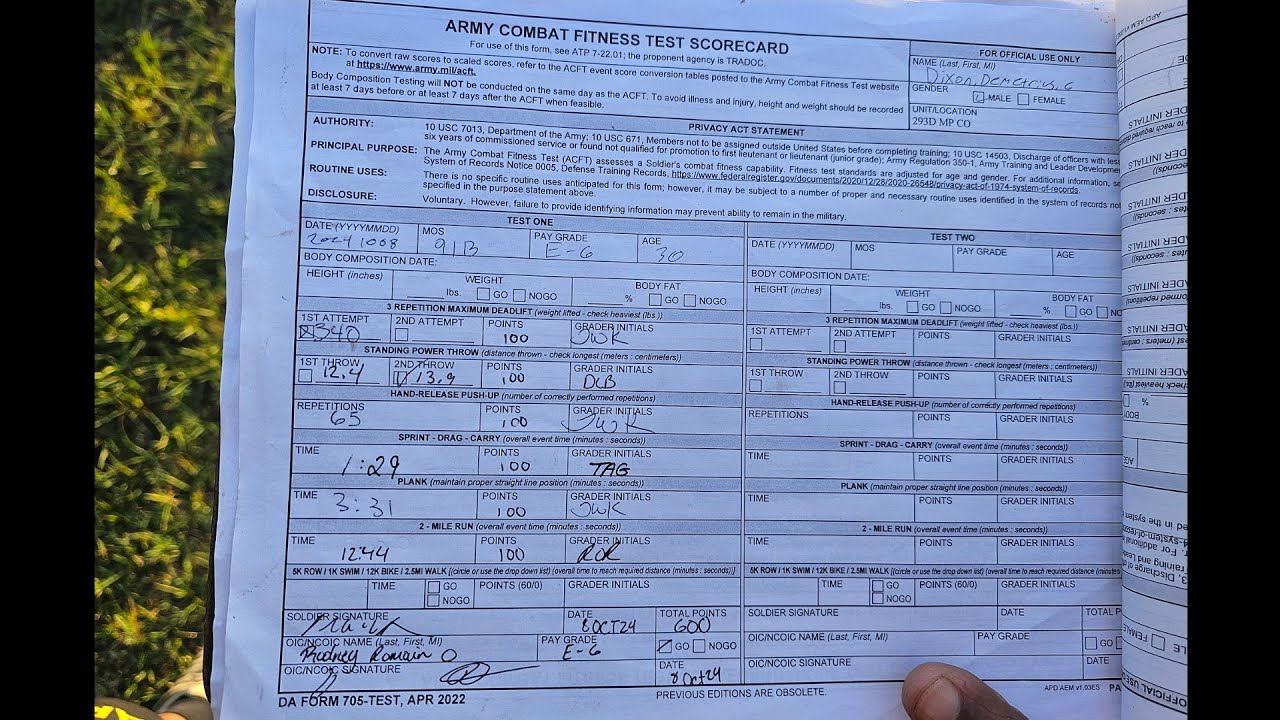 ARMY COMBAT FITNESS TEST SCORECARD
For use of this form, see ATP 7-22.01; the proponent agency is TRADOC.
NOTE: To convert raw scores to scaled scores, refer to the ACFT event score conversion tables posted to the Army Combat Fitness Test website
at https://www.army.mil/acft.
Body Composition Testing will NOT be conducted on the same day as the ACFT. To avoid illness and injury, height and weight should be recorded
at least 7 days before or at least 7 days after the ACFT when feasible.
FOR OFFICIAL USE ONLY
NAME (Last, First, MI)
Dixon, Demetrius, C
GENDER
MALE FEMALE
UNIT/LOCATION
293D MP CO
PRIVACY ACT STATEMENT
AUTHORITY: 10 USC 7013, Department of the Army; 10 USC 671, Members not to be assigned outside United States before completing training; 10 USC 14503, Discharge of officers with less
six years of commissioned service or found not qualified for promotion to first lieutenant or lieutenant (junior grade); Army Regulation 350-1, Army Training and Leader Developmen
PRINCIPAL PURPOSE: The Army Combat Fitness Test (ACFT) assesses a Soldier's combat fitness capability. Fitness test standards are adjusted for age and gender. For additional information, se
System of Records Notice 0005, Defense Training Records, https://www.federalregister.gov/documents/2020/12/28/2020-26548/privacy-act-of-1974-system-of-records.
ROUTINE USES: There is no specific routine uses anticipated for this form; however, it may be subject to a number of proper and necessary routine uses identified in the system of records not
specified in the purpose statement above.
DISCLOSURE: Voluntary. However, failure to provide identifying information may prevent ability to remain in the military.
TEST ONE
DATE (YYYYMMDD) MOS PAY GRADE AGE
20241008 91B E-6 30
BODY COMPOSITION DATE:
HEIGHT (inches) WEIGHT BODY FAT
lbs. GO NOGO % GO NOGO
3 REPETITION MAXIMUM DEADLIFT (weight lifted - check heaviest (lbs.))
1ST ATTEMPT 2ND ATTEMPT POINTS GRADER INITIALS
340 100 JWK
STANDING POWER THROW (distance thrown - check longest (meters : centimeters))
1ST THROW 2ND THROW POINTS GRADER INITIALS
12.4 13.9 100 DCB
HAND-RELEASE PUSH-UP (number of correctly performed repetitions)
REPETITIONS POINTS GRADER INITIALS
65 100 JWK
SPRINT - DRAG - CARRY (overall event time (minutes : seconds))
TIME POINTS GRADER INITIALS
1:29 100 TAG
PLANK (maintain proper straight line position (minutes : seconds))
TIME POINTS GRADER INITIALS
3:31 100 JWK
2 - MILE RUN (overall event time (minutes : seconds))
TIME POINTS GRADER INITIALS
1244 100 ROR
5K ROW / 1K SWIM / 12K BIKE / 2.5MI WALK [(circle or use the drop down list) (overall time to reach required distance (minutes : seconds))]
TIME GO POINTS (60/0) GRADER INITIALS
NOGO
SOLDIER SIGNATURE DATE TOTAL POINTS
8OCT24 600
OIC/NCOIC NAME (Last, First, MI) PAY GRADE GO NOGO
Rodney Romain O E-6
OIC/NCOIC SIGNATURE DATE
8Oct24
TEST TWO
DATE (YYYYMMDD) MOS PAY GRADE AGE
BODY COMPOSITION DATE:
HEIGHT (inches) WEIGHT BODY FAT
lbs. GO NOGO % GO NO
3 REPETITION MAXIMUM DEADLIFT (weight lifted - check heaviest (lbs.))
1ST ATTEMPT 2ND ATTEMPT POINTS GRADER INITIALS
STANDING POWER THROW (distance thrown - check longest (meters : centimeters))
1ST THROW 2ND THROW POINTS GRADER INITIALS
HAND-RELEASE PUSH-UP (number of correctly performed repetitions)
REPETITIONS POINTS GRADER INITIALS
SPRINT - DRAG - CARRY (overall event time (minutes : seconds))
TIME POINTS GRADER INITIALS
PLANK (maintain proper straight line position (minutes : seconds))
TIME POINTS GRADER INITIALS
2 - MILE RUN (overall event time (minutes : seconds))
TIME POINTS GRADER INITIALS
5K ROW / 1K SWIM / 12K BIKE / 2.5MI WALK [(circle or use the drop down list) (overall time to reach required distance (minutes : seconds
TIME GO POINTS (60/0) GRADER INITIALS
NOGO
SOLDIER SIGNATURE DATE TOTAL P
OIC/NCOIC NAME (Last, First, MI) PAY GRADE GO
OIC/NCOIC SIGNATURE DATE
DA FORM 705-TEST, APR 2022 PREVIOUS EDITIONS ARE OBSOLETE. APD AEM v1.03ES PA